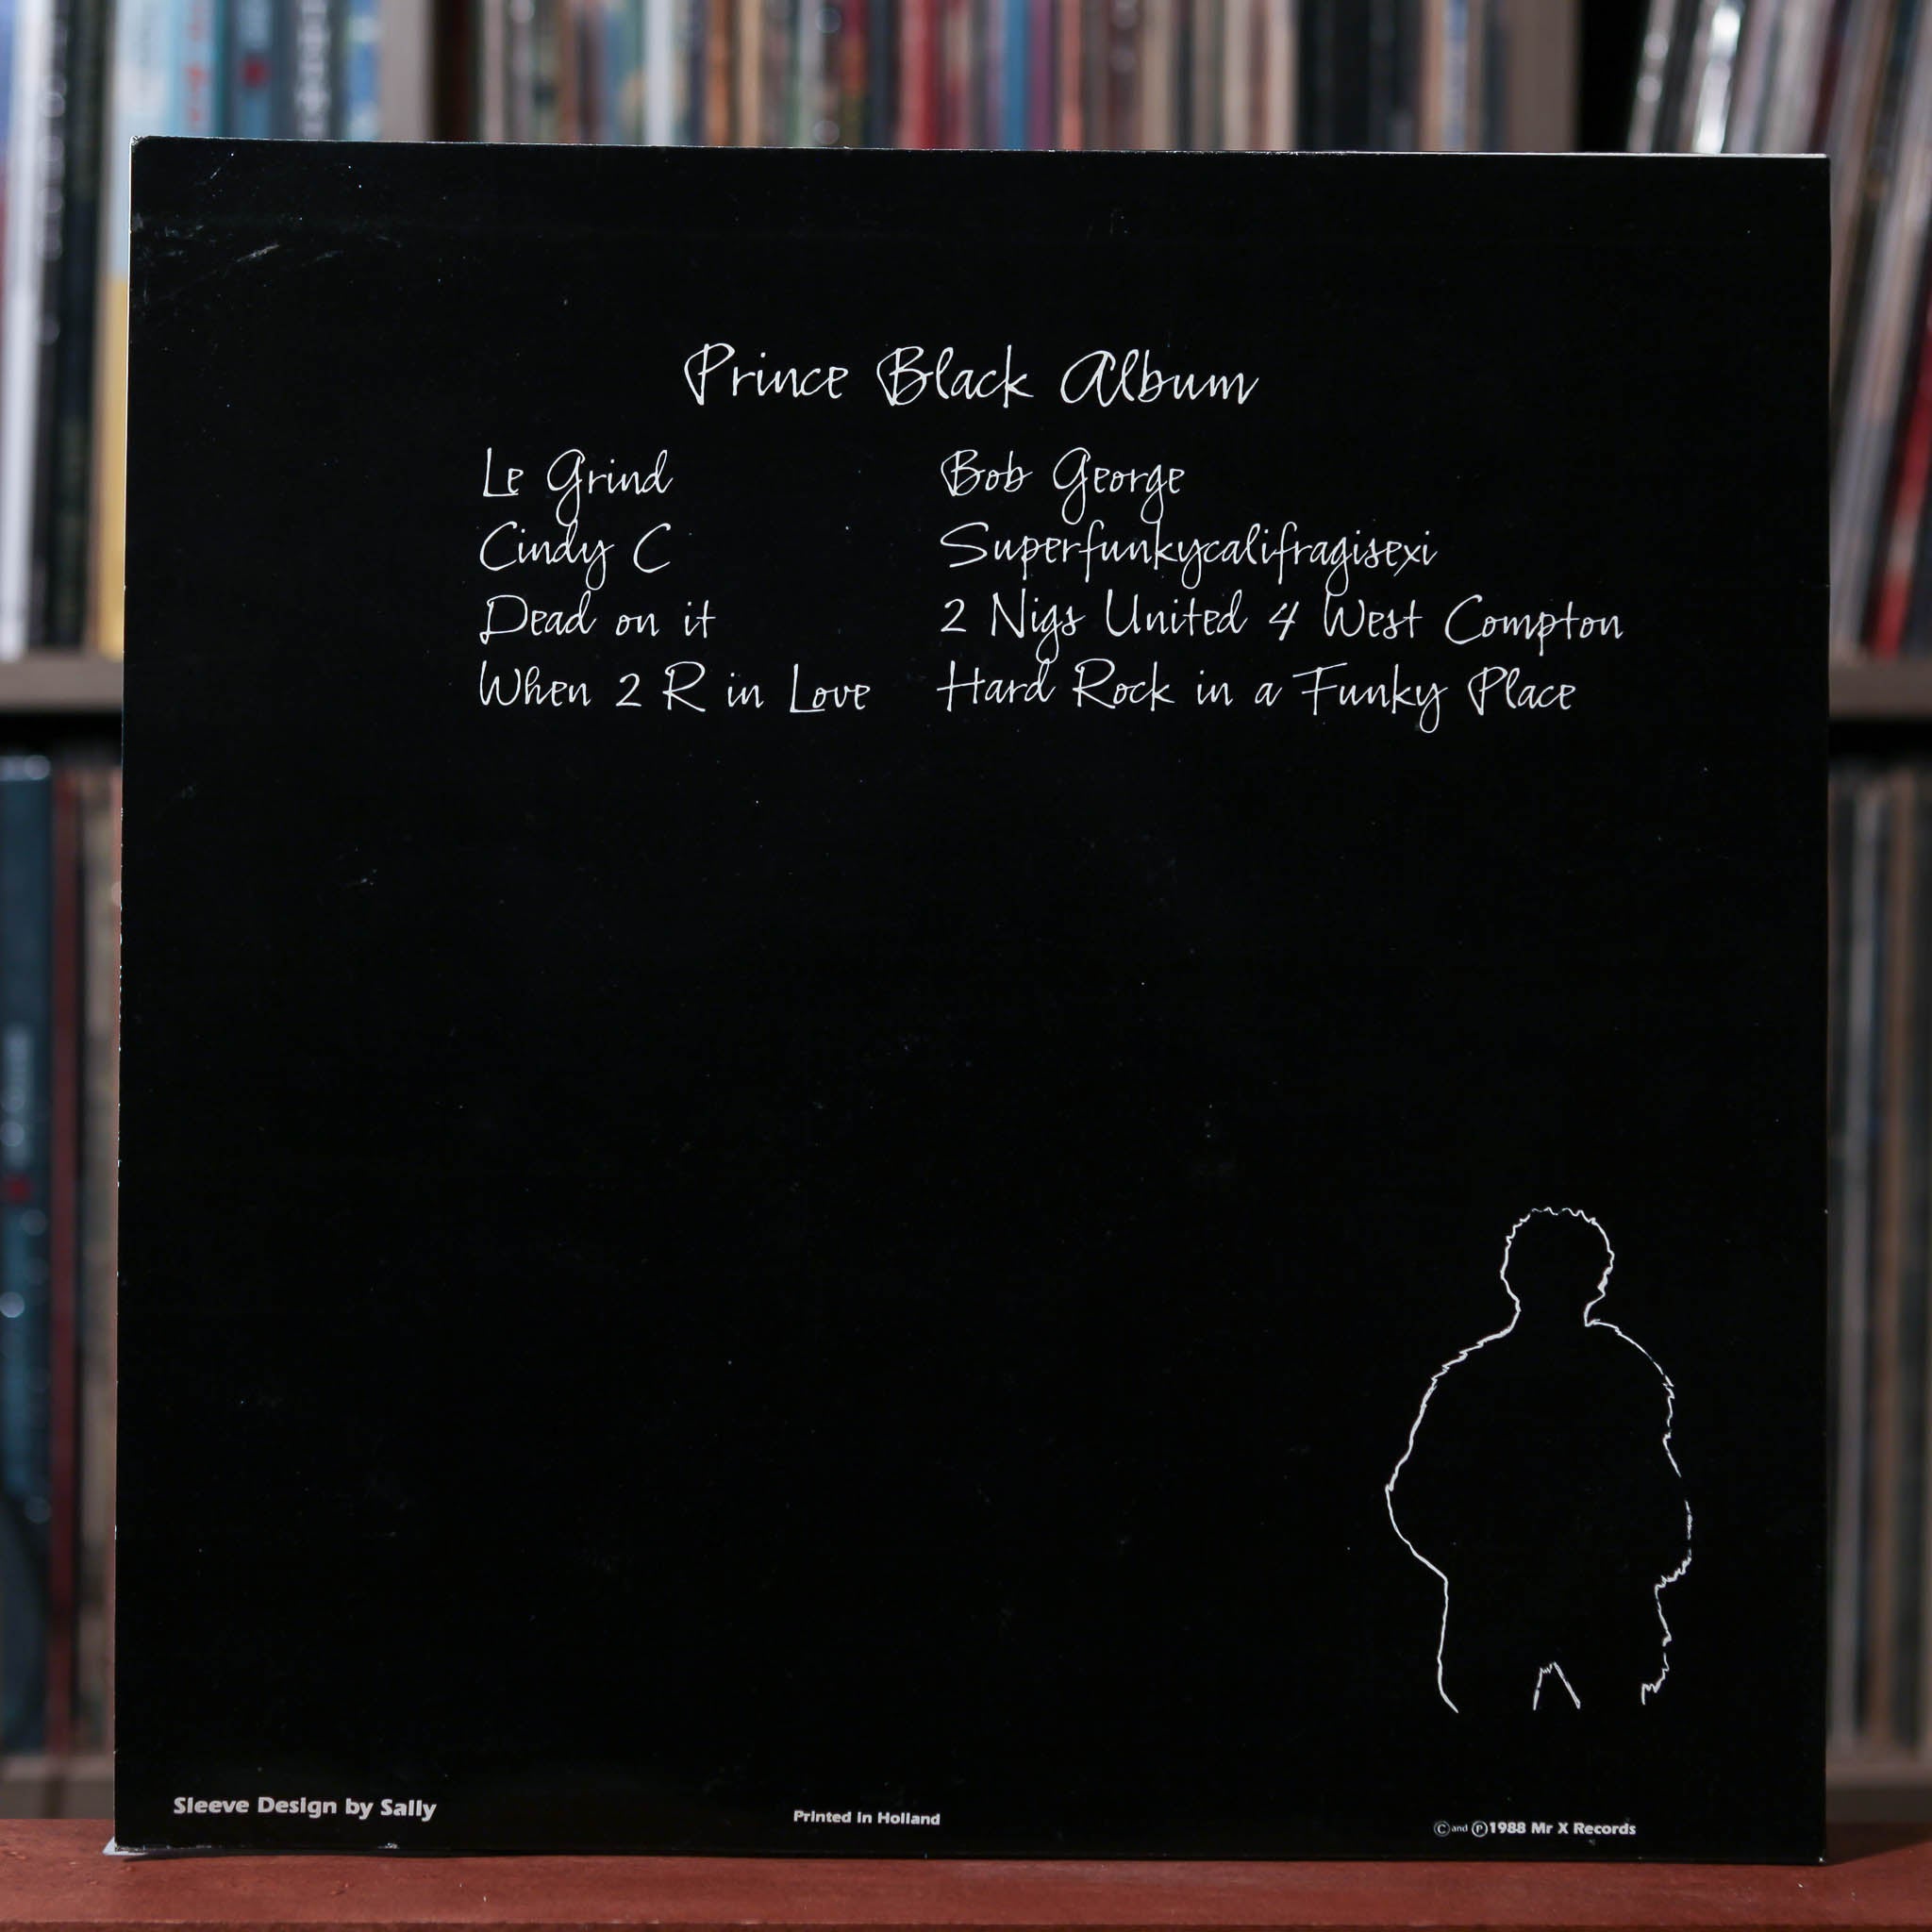 Prince Black Album
Le Grind
Cindy C
Dead on it
When 2 R in Love
Bob George
Superfunkycalifragisexi
2 Nigs United 4 West Compton
Hard Rock in a Funky Place
Sleeve Design by Sally
Printed in Holland
© and ℗ 1988 Mr X Records